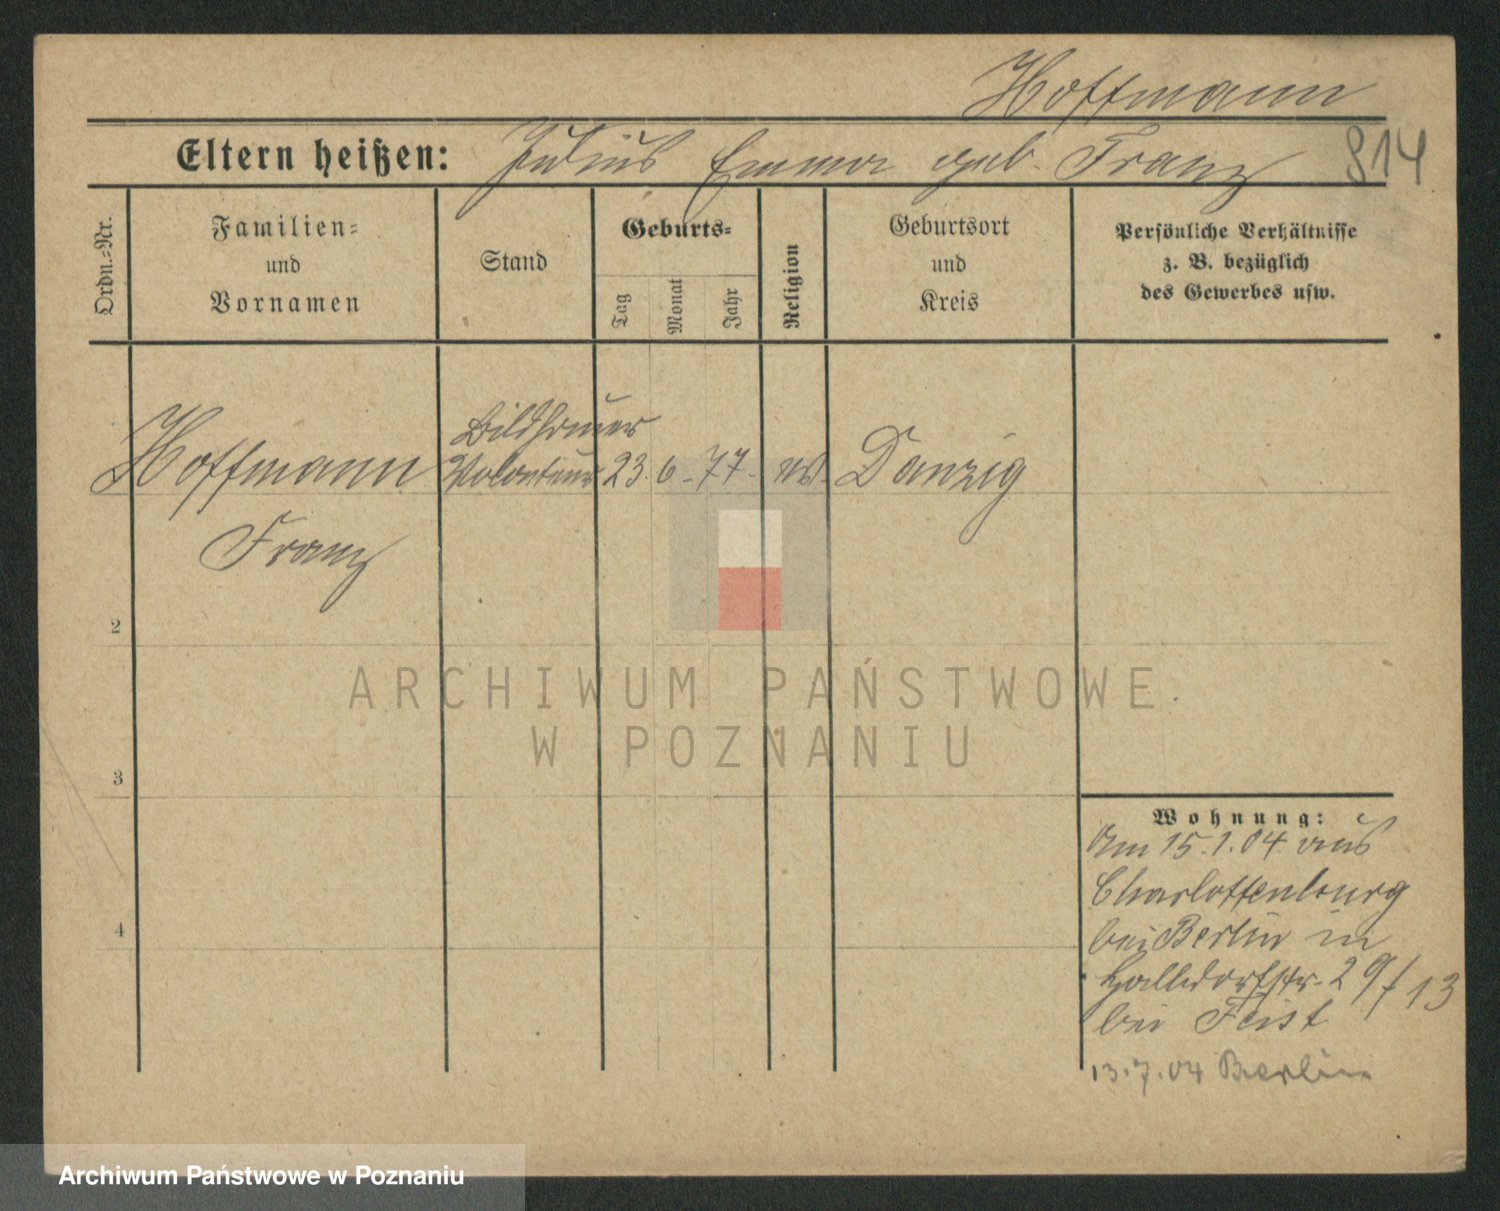 Hoffmann
Eltern heißen: Julius Emma geb. Franz 814
Ordn.-Nr.
Familien-
und
Vornamen
Stand
Geburts-
Tag
Monat
Jahr
Religion
Geburtsort
und
Kreis
Persönliche Verhältnisse
z. B. bezüglich
des Gewerbes usw.
Bildhauer
Hoffmann Volonteur 23. 6. 77. ev. Danzig
Franz
2
3
4
ARCHIWUM PAŃSTWOWE
W POZNANIU
Wohnung:
Am 15.1.04 aus
Charlottenburg
bei Berlin in
29/13
bei Feist
13.7.04 Berlin
Archiwum Państwowe w Poznaniu